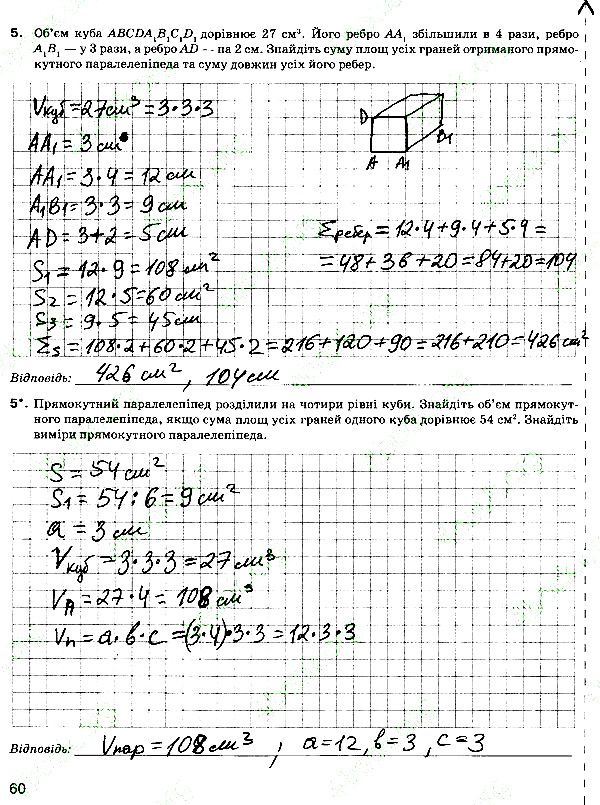 5. Об'єм куба ABCDA₁B₁C₁D₁ дорівнює 27 см³. Його ребро AA₁ збільшили в 4 рази, ребро
A₁B₁ — у 3 рази, а ребро AD -- на 2 см. Знайдіть суму площ усіх граней отриманого прямо-
кутного паралелепіпеда та суму довжин усіх його ребер.
Vкуб = 27см³ = 3·3·3
D
AA₁ = 3 см
B₁
A A₁
AA₁ = 3·4 = 12 см
A₁B₁ = 3·3 = 9 см
AD = 3+2 = 5 см
Σребер = 12·4+9·4+5·4 =
= 48+36+20 = 84+20=104
S₁ = 12·9 = 108 см²
S₂ = 12·5=60 см²
S₃ = 9·5 = 45см
Σs = 108·2+60·2+45·2=216+120+90=216+210=426 см²
Відповідь: 426 см², 104см
5*. Прямокутний паралелепіпед розділили на чотири рівні куби. Знайдіть об'єм прямокут-
ного паралелепіпеда, якщо сума площ усіх граней одного куба дорівнює 54 см². Знайдіть
виміри прямокутного паралелепіпеда.
S = 54 см²
S₁ = 54 : 6 = 9 см²
a = 3 см
Vкуб = 3·3·3 = 27 см³
Vп = 27·4 = 108 см³
Vп = a·b·c = (3·4)·3·3 = 12·3·3
Відповідь: Vпар = 108см³ ; a=12, b=3, c=3
60